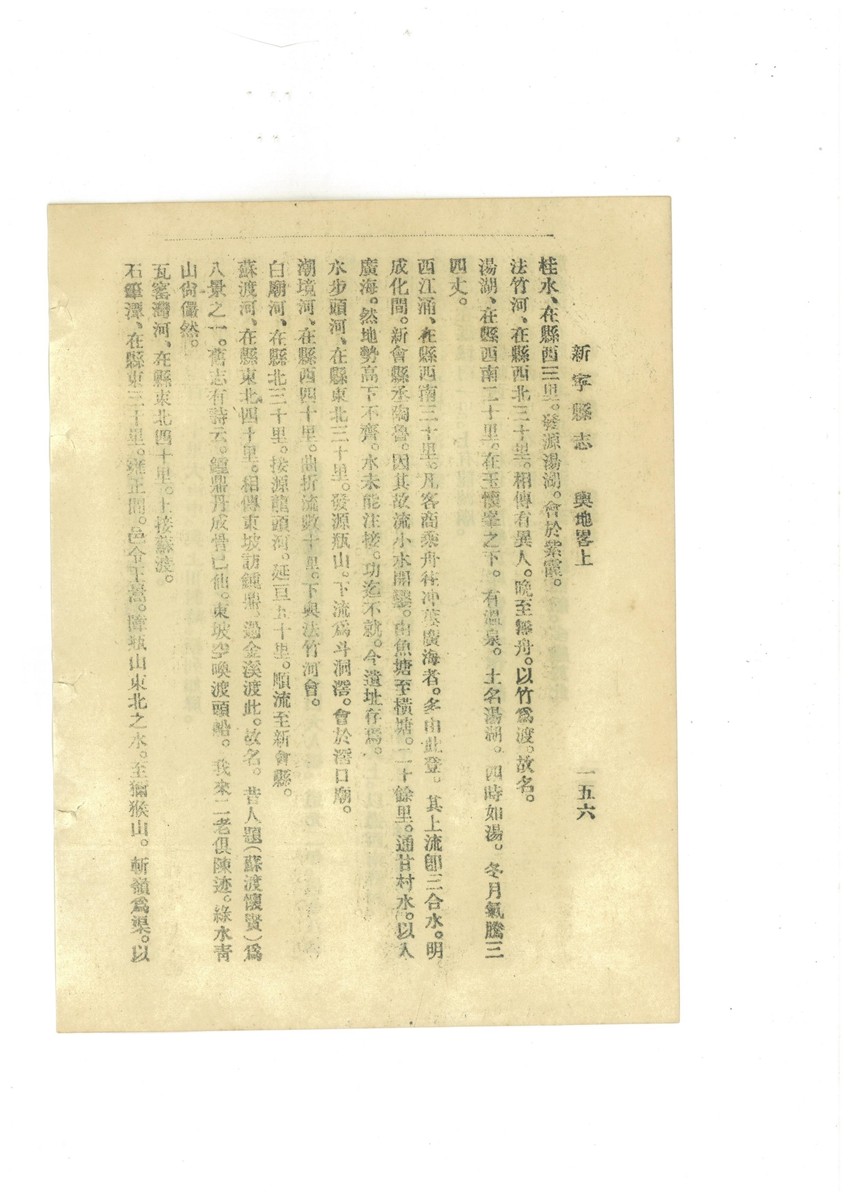 新寧縣志　輿地畧上　一五六
桂水、在縣西三里。發源湯湖。會於紫霞。
法竹河、在縣西北三十里。相傳有異人。晚至無舟。以竹爲渡。故名。
湯湖、在縣西南二十里。在玉懷峯之下。有溫泉。土名湯湖。四時如湯。冬月氣騰三
四丈。
西江涌、在縣西南三十里。凡客商乘舟往冲蔞廣海者。多由此登。其上流卽三合水。明
成化間。新會縣丞陶魯。因其故流小水開鑿。由魚塘至橫塘。二十餘里。通甘村水。以入
廣海。然地勢高下不齊。水未能注接。功迄不就。今遺址存焉。
水步頭河、在縣東北三十里。發源瓶山。下流爲斗洞滘。會於滘口廟。
潮境河、在縣西四十里。曲折流數十里。下與法竹河會。
白廟河、在縣北三十里。接源龍頭河。延亘五十里。順流至新會縣。
蘇渡河、在縣東北四十里。相傳東坡訪鍾鼎。過金溪渡此。故名。昔人題（蘇渡懷賢）爲
八景之一。舊志有詩云。鍾鼎丹成骨已仙。東坡空喚渡頭船。我來二老俱陳迹。綠水靑
山尙儼然。
瓦窰灣河、在縣東北四十里。上接蘇渡。
石龜潭、在縣東三十里。雍正間。邑令王暠。障瓶山東北之水。至獼猴山。斬嶺爲渠。以